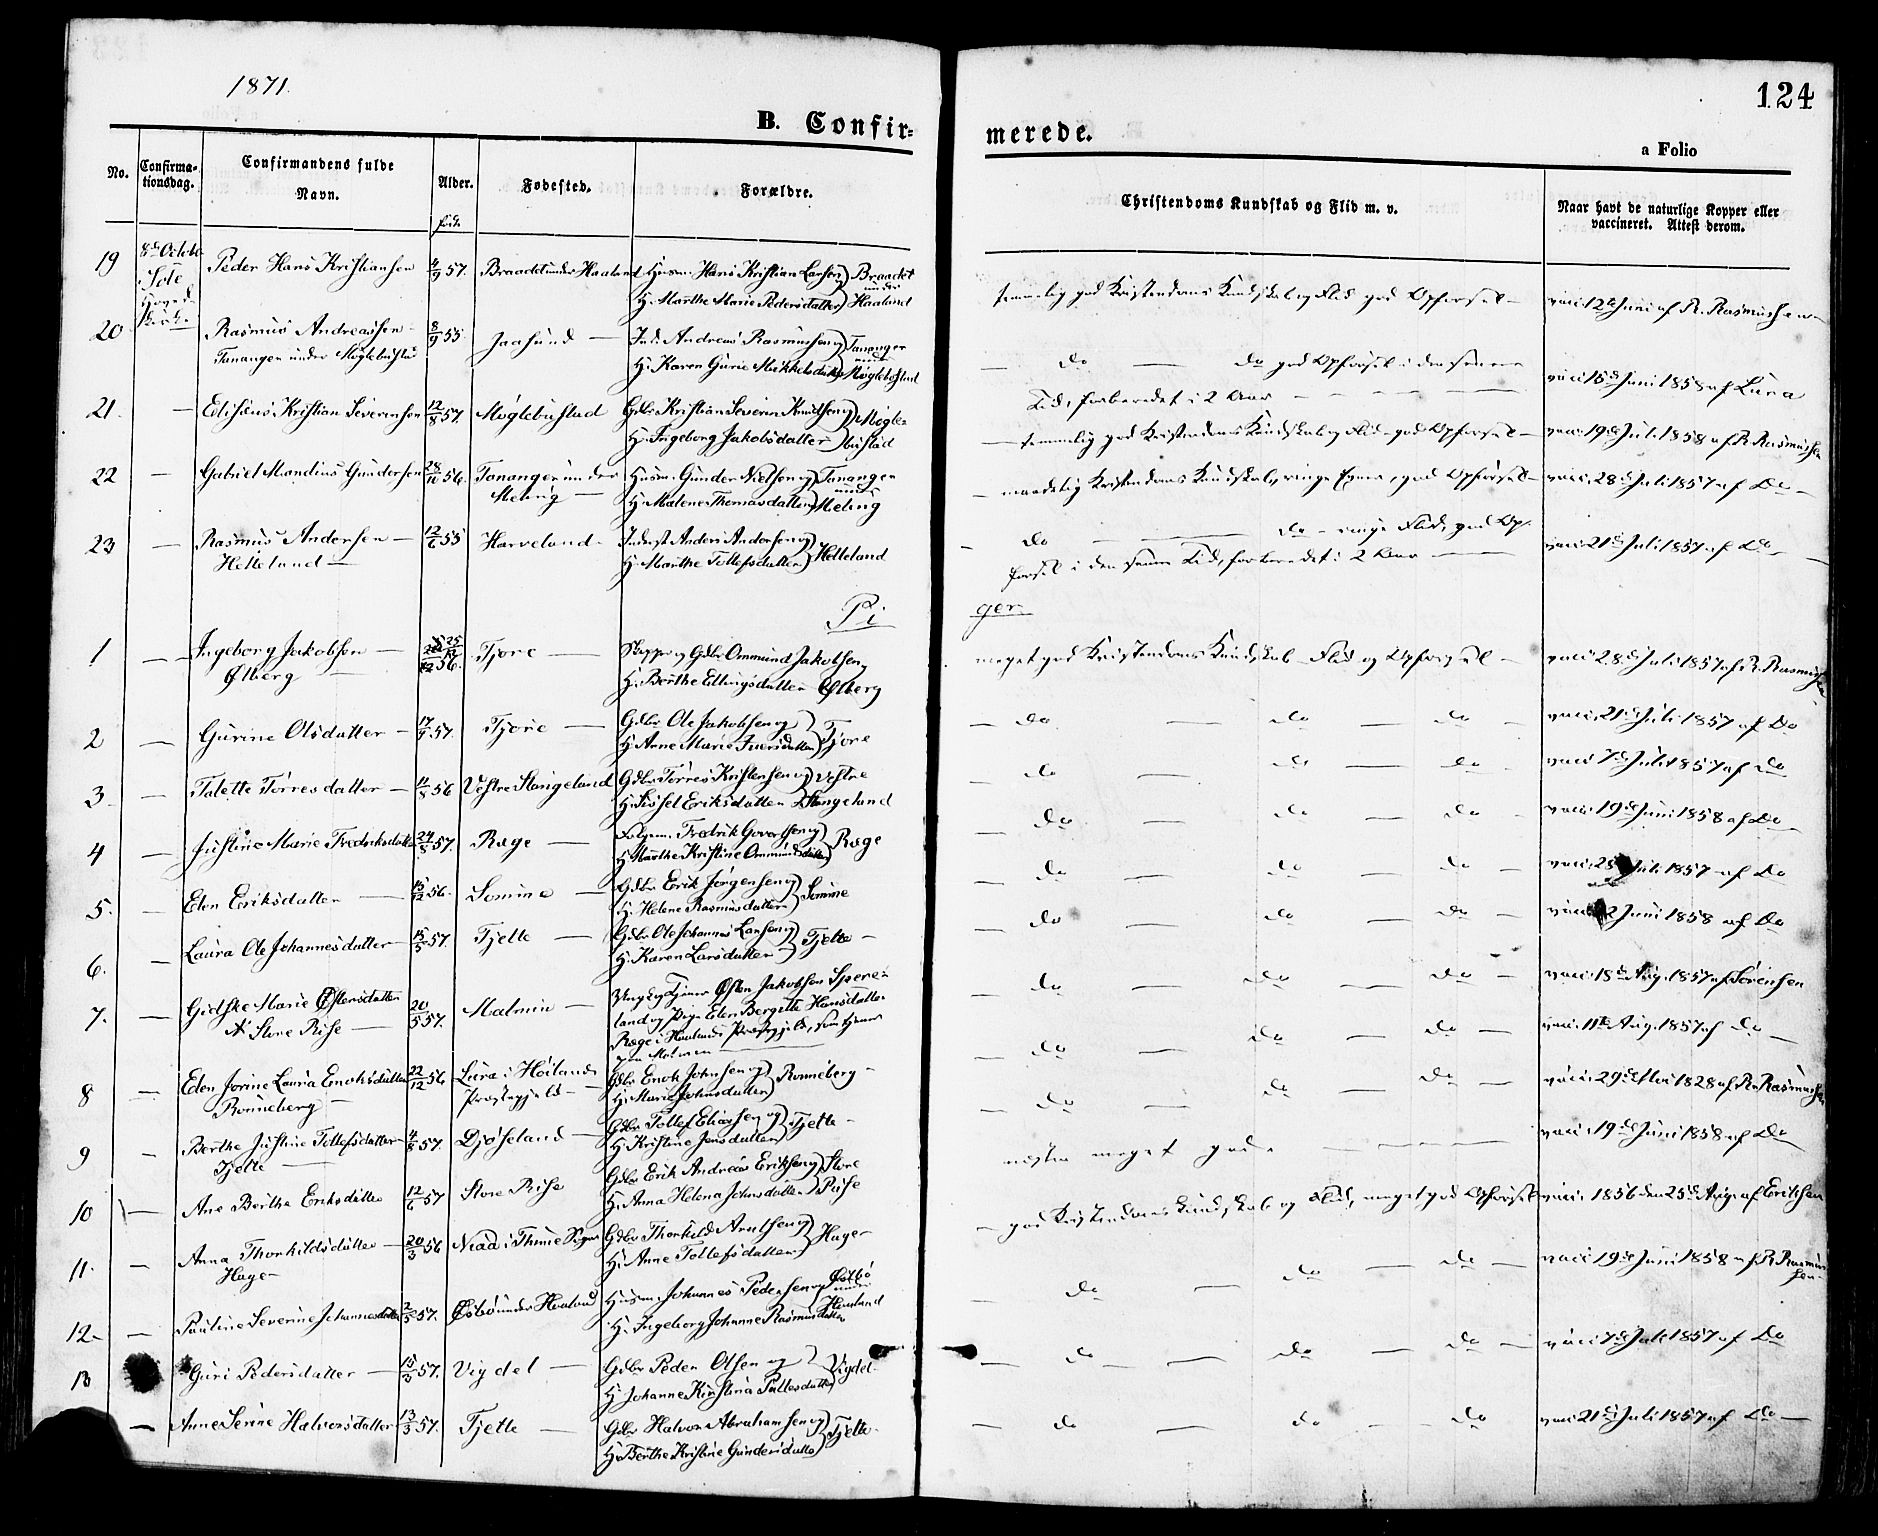 1871.
124
B. Confir=
merede.
a Folio
No.
Confirma-
tionsdag.
Confirmandens fulde
Navn.
Alder.
Fødested.
Forældre.
Christendoms Kundskab og Flid m. v.
Naar havt de naturlige Kopper eller
vaccineret. Attest derom.
19 8de Octobr Peder Hans Kristiansen 4/9 57. Braadet under Haaland Husm. Hans Kristian Larsen og Braadet under
Sole
H. Marthe Marie Pedersdatter Haaland
temmelig god Kristendoms Kundskab og Flid god Opførsel – vacc. 12te Juni af R. Rasmussen
20 Rasmus Andreassen 8/9 55 Jaasund – Ind. Andreas Rasmussen og Tananger
Tananger under Møglebustad
H. Karen Gurie Mikkelsdatter Møglebustad
– do – do god Opførsel i den senere vacc. 15de Juni 1858 af Lura
Tid, forberedet i 2 Aar
21. – Edisius Kristian Severinsen 12/8 57. Møglebustad Gdbr Kristian Severin Knudsen og Mogle-
H. Ingeborg Jakobsdatter bustad
– temmelig god Kristendoms Kundskab og Flid – god Opførsel – vacc. 19de Juli 1858 af R. Rasmussen
22 – Gabriel Mandius Gundersen 28/10 56. Tananger under Husm. Gunder Nielsen og Tananger
Meling – H. Malene Thomasdatter under Meling
– maadelig Kristendoms Kundskab, ringe Evner, god Opførsel – vacc. 28de Juli 1857 af Do –
23 – Rasmus Andersen – 12/6 55 Harveland – Inderst Anders Andersen og
Helleland – H. Marthe Tollefsdatter Helleland
– Do – do – ringe Flid, god Op- vacc. 21de Juli 1857 af Do –
førsel i den senere Tid, forberedet i 2 Aar –
Pi
ger.
1 – Ingeborg Jakobsen – 25/12 56. Tjore – Skipper og Gdbr Ommund Jakobsen og
Ølberg – H. Berthe Ellingsdatter Ølberg
meget god Kristendoms Kundskab – Flid og Opførsel – vacc. 28de Juli 1857 af R. Rasmussen
2 – Gurine Olsdatter – 17/9 57. Tjore – Gdbr Ole Jakobsen og
H. Anne Marie Iversdatter Tjore
– do – do – do – vacc. 21de Juli 1857 af Do
3 – Talette Torresdatter – 11/8 56 Vestre Stangeland Gdbr Torres Kristensen og Vestre
H. Sissel Eriksdatter Stangeland
– do – do – do – vacc 7de Juli 1857 af Do
4 – Justine Marie Fredriksdatter 24/8 57. Ræge – Fredrik Govertsen og
H. Marthe Kristine Ommundsdatter Ræge
– do – do – do – vacc. 19de Juni 1858 af Do
5. – Elen Eriksdatter – 15/12 56. Somme – Gdbr Erik Jørgensen og
H. Helene Rasmusdatter Somme
– do – do – do – vacc. 28 Juli 1857 af Do
6. – Laura Ole Johannesdatter – 15/5 57. Tjelte – Gdbr Ole Johannes Larsen og
H. Karen Larsdatter Tjelte –
– do – do – do – vacc. Juni 1858 af Do
7. – Gidske Marie Østensdatter 20/5 57. Malmin – Ungkar Tjener Østen Jakobsen
A Store Risse – land og Pige Elen Bergitte Hansdatter
Ræge i Haalands Præstegjeld, som tjener
paa Malmin –
– do – do – do – vacc. 18de Aug. 1857 af Sørensen
8 – Elen Jorine Laura Enoksdatter 22/12 56 Lura i Høilands Gdbr Enok Johnsen og
Ronneberg – Præstegjeld – H. Marie Johnsdatter Ronneberg –
– do – do – do – vacc. 11te Aug. 1857 af do –
9 – Berthe Justine Tollefsdatter 4/8 57. Djøseland – Gdbr Tollef Eliassen og Tjelte –
Tjelte – H. Kristine Jensdatter
– do – do – do – vacc. 29de Mai 1828 af R. Rasmussen
10 – Ane Berthe Eriksdatter 12/6 57 Store Rise Gdbr Erik Andreas Eriksen og Store
H. Anna Helena Johnsdatter Rise
næsten meget gode – vacc. 19de Juni 1858 af Do
11. – Anna Thorkildsdatter – 20/3 56 Niaa i Thime Sogn Gdbr Thorkild Arntsen og
Hage – H. Anne Tollefsdatter Hage –
– god Kristendoms Kundskab og Flid, meget god Opførsel vacc. 1856 den 25de Aug. af Erichsen
12 – Pauline Severine Johannesdatter 2/5 57. Østbø under Haaland Husm. Johannes Pedersen og Østbø under
H. Ingeborg Johanne Rasmusdatter Haaland
– do – do – do – vacc. 19de Juni 1858 af R. Rasmus-
sen
13 Guri Pedersdatter – 15/3 57. Vigdel – Gdbr Peder Olsen og
H. Johanne Kirstina Pallesdatter Vigdel.
– do – do – do – vacc. 7de Juli 1857 af Do
– Anne Serine Halvorsdatter 13/3 57. Tjelte – Gdbr Halvor Abrahamsen og
H. Berthe Kristine Gundersdatter Tjelte.
– do – do – do vacc. 21de Juli 1857 af Do –